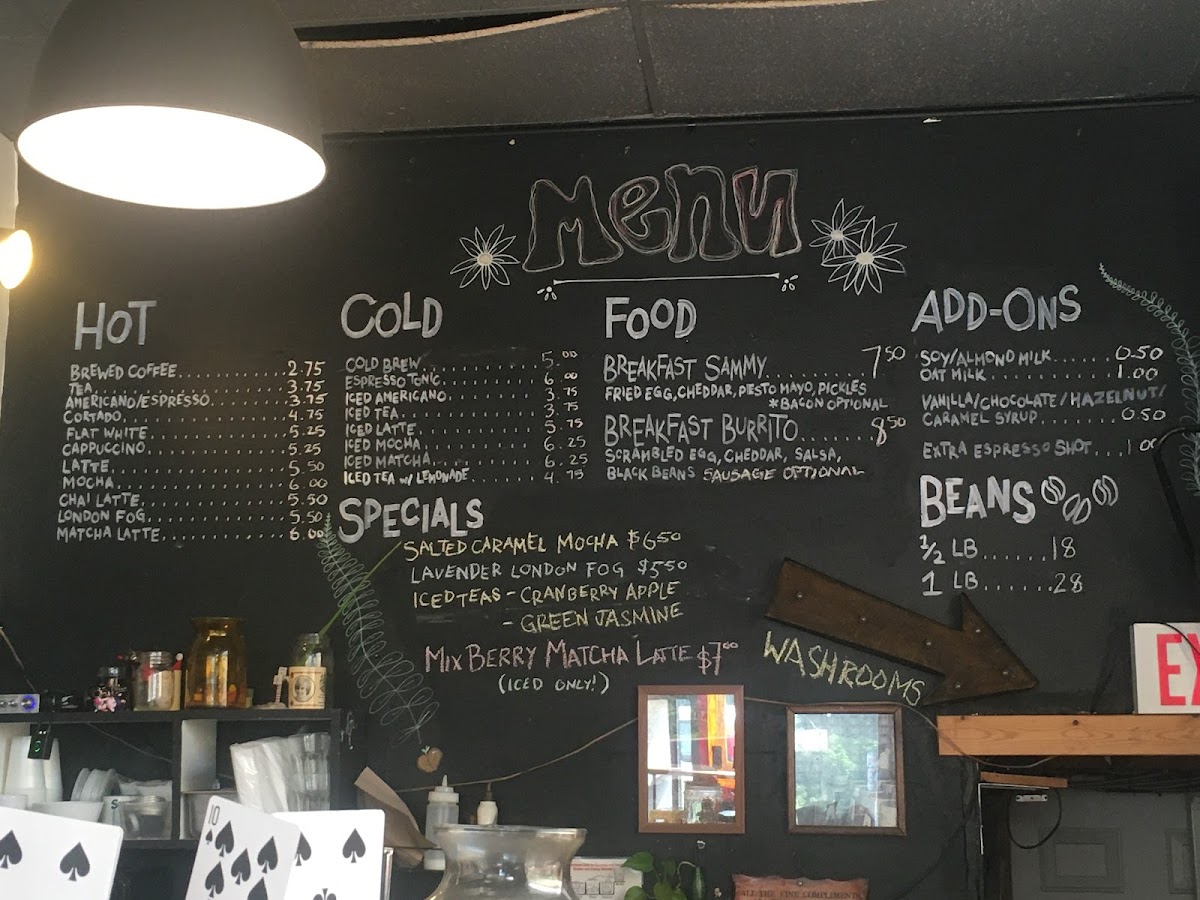 Menu
HOT
BREWED COFFEE 2.75
TEA 3.75
AMERICANO/ESPRESSO 3.75
CORTADO 4.75
FLAT WHITE 5.25
CAPPUCCINO 5.25
LATTE 5.50
MOCHA 6.00
CHAI LATTE 5.50
LONDON FOG 5.50
MATCHA LATTE 6.00
COLD
COLD BREW 5.00
ESPRESSO TONIC 6.00
ICED AMERICANO 3.75
ICED TEA 3.75
ICED LATTE 5.75
ICED MOCHA 6.25
ICED MATCHA 6.25
ICED TEA W/ LEMONADE 4.75
FOOD
BREAKFAST SAMMY 7.50
FRIED EGG, CHEDDAR, PESTO MAYO, PICKLES
*BACON OPTIONAL
BREAKFAST BURRITO 8.50
SCRAMBLED EGG, CHEDDAR, SALSA,
BLACK BEANS SAUSAGE OPTIONAL
ADD-ONS
SOY/ALMOND MILK 0.50
OAT MILK 1.00
VANILLA/CHOCOLATE/HAZELNUT/
CARAMEL SYRUP 0.50
EXTRA ESPRESSO SHOT 1.00
BEANS
1/2 LB 18
1 LB 28
SPECIALS
SALTED CARAMEL MOCHA $6.50
LAVENDER LONDON FOG $5.50
ICED TEAS - CRANBERRY APPLE
- GREEN JASMINE
MIX BERRY MATCHA LATTE $7.00
(ICED ONLY!)
WASHROOMS
10